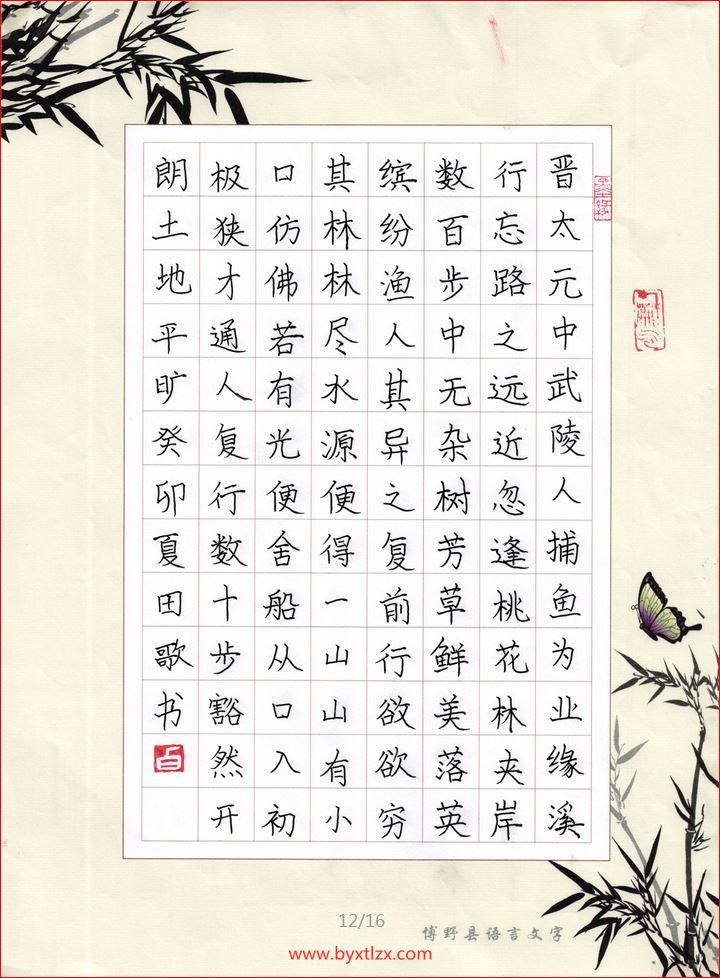 晋太元中武陵人捕鱼为业缘溪
行忘路之远近忽逢桃花林夹岸
数百步中无杂树芳草鲜美落英
缤纷渔人其异之复前行欲欲穷
其林林尽水源便得一山山有小
口仿佛若有光便舍船从口入初
极狭才通人复行数十步豁然开
朗土地平旷癸卯夏田歌书
12/16
博野县语言文字
www.byxtlzx.com